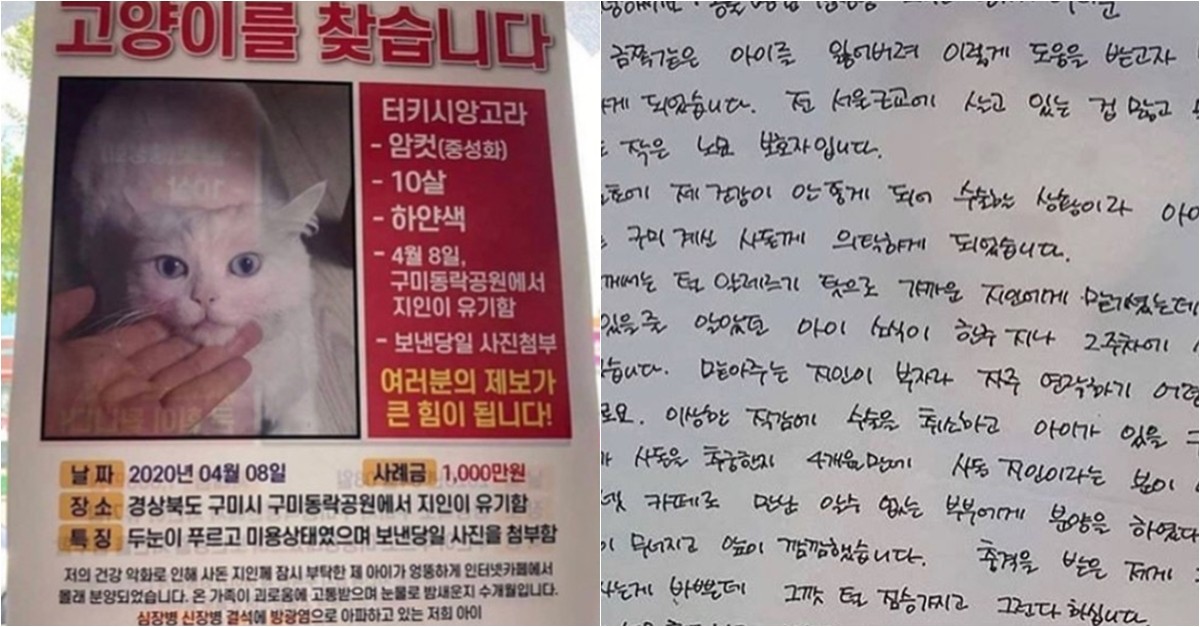 고양이를 찾습니다
터키시앙고라
- 암컷(중성화)
- 10살
- 하얀색
- 4월 8일,
구미동락공원에서
지인이 유기함
- 보낸당일 사진첨부
여러분의 제보가
큰 힘이 됩니다!
날 짜 2020년 04월 08일 사례금 1,000만원
장 소 경상북도 구미시 구미동락공원에서 지인이 유기함
특 징 두눈이 푸르고 미용상태였으며 보낸당일 사진을 첨부함
저의 건강 악화로 인해 사돈 지인께 잠시 부탁한 제 아이가 엉뚱하게 인터넷카페에서
몰래 분양되었습니다. 온 가족이 괴로움에 고통받으며 눈물로 밤새운지 수개월입니다.
심장병 신장병 결석에 방광염으로 아파하고 있는 저희 아이
금쪽같은 아이를 잃어버려 이렇게 도움을 받고자
하게 되었습니다. 전 서울근교에 살고 있는 겁 많고
작은 노묘 보호자입니다.
초에 제 건강이 안 좋게 되어 수술하는 상황이라 아이
구미 계신 사돈께 의탁하게 되었습니다.
께서는 털 알레르기 탓으로 가까운 지인에게 맡기셨는데
있을줄 알았던 아이 소식이 한주 지나 2주차에
습니다. 맡아주는 지인이 부자라 자주 연락하기 어려
로요. 이상한 직감에 수술을 취소하고 아이가 있을
사돈을 추궁한지 4개월만에 사돈 지인이라는 분이
넷 카페로 만난 알수 없는 부부에게 분양을 하였다
이 무너지고 앞이 깜깜했습니다. 충격을 받은 제게
사는게 바쁜데 그깟 털 짐승가지고 그런다 하십니다